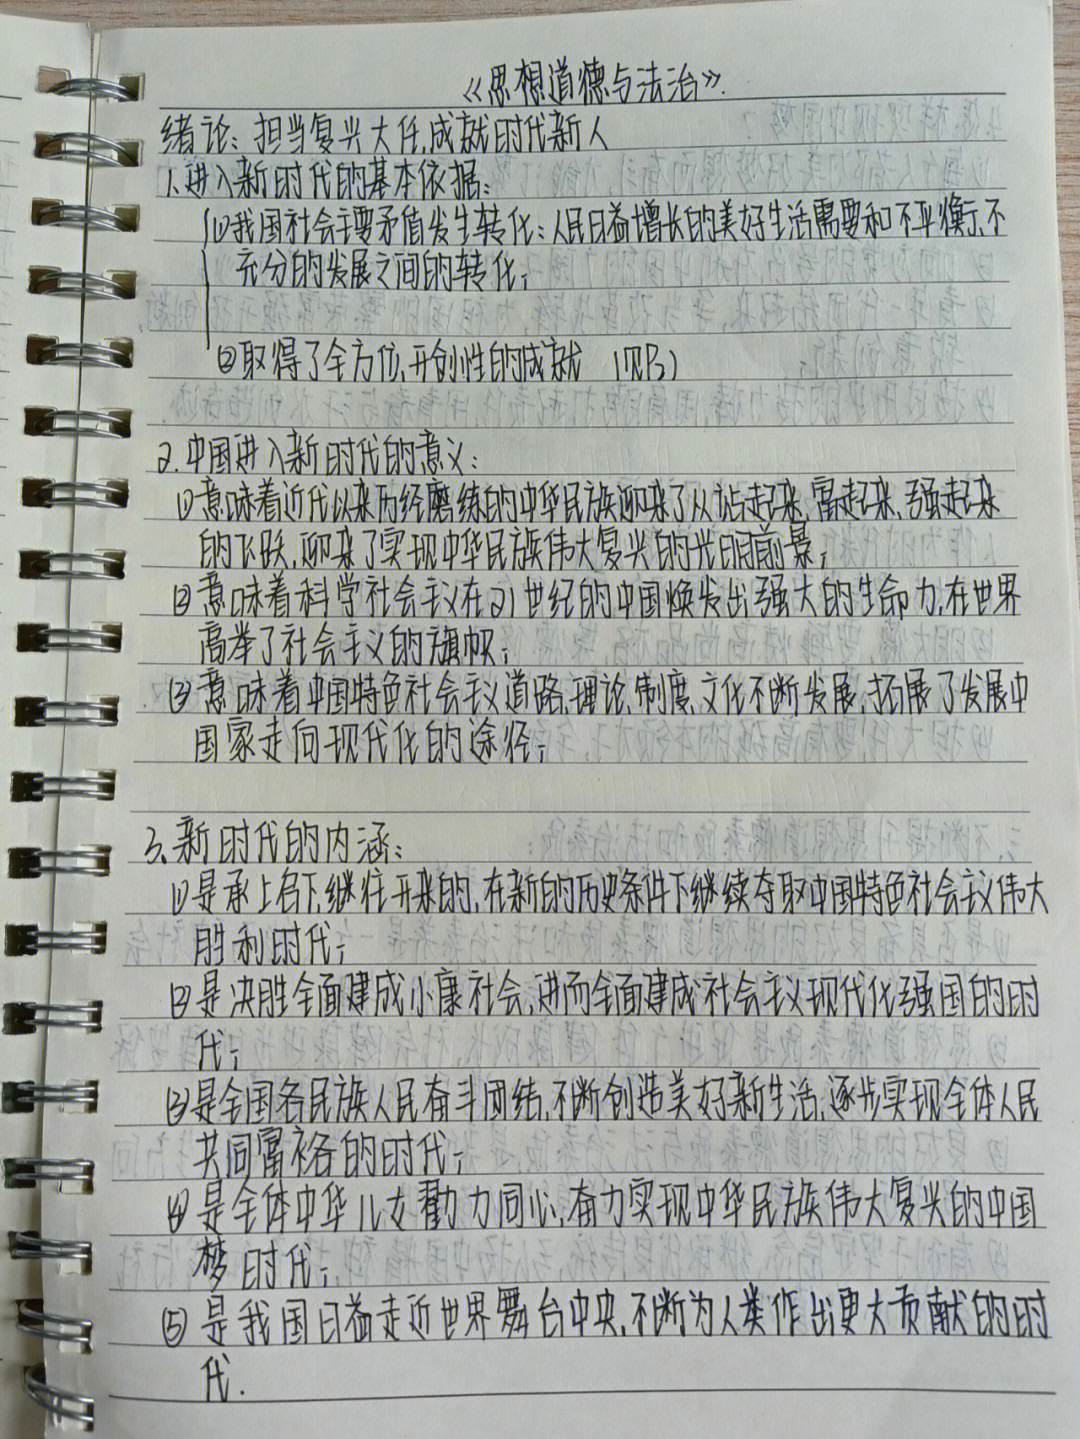 《思想道德与法治》.
绪论：担当复兴大任,成就时代新人
1.进入新时代的基本依据：
①我国社会主要矛盾发生转化：人民日益增长的美好生活需要和不平衡、不
充分的发展之间的转化；
②取得了全方位、开创性的成就 (P3)
2.中国进入新时代的意义：
①意味着近代以来历经磨练的中华民族迎来了从站起来、富起来、强起来
的飞跃,迎来了实现中华民族伟大复兴的光明前景；
②意味着科学社会主义在21世纪的中国焕发出强大的生命力,在世界
高举了社会主义的旗帜；
③意味着中国特色社会主义道路、理论、制度、文化不断发展,拓展了发展中
国家走向现代化的途径；
3.新时代的内涵：
①是承上启下、继往开来的,在新的历史条件下继续夺取中国特色社会主义伟大
胜利时代；
②是决胜全面建成小康社会,进而全面建成社会主义现代化强国的时
代；
③是全国各民族人民奋斗团结,不断创造美好新生活,逐步实现全体人民
共同富裕的时代；
④是全体中华儿女勠力同心,奋力实现中华民族伟大复兴的中国
梦时代；
⑤是我国日益走近世界舞台中央,不断为人类作出更大贡献的时
代.